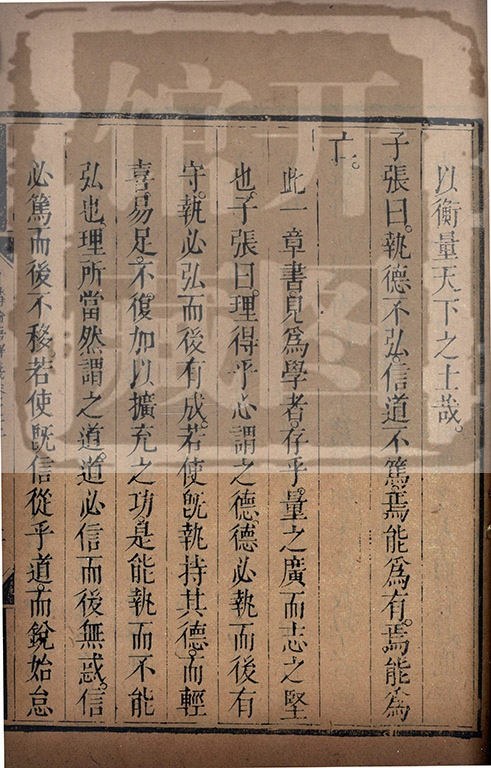 以衡量天下之士哉。
子張曰。執德不弘。信道不篤。焉能爲有。焉能爲
亡。
此一章書。見爲學者。存乎。量之廣而志之堅
也。子張曰。理得乎心謂之德。德必執而後有
守。執必弘而後有成。若使旣執持其德。而輕
喜易足。不復加以擴充之功。是能執而不能
弘也。理所當然謂之道。道必信而後無惑。信
必篤而後不移。若使旣信從乎道。而銳始怠